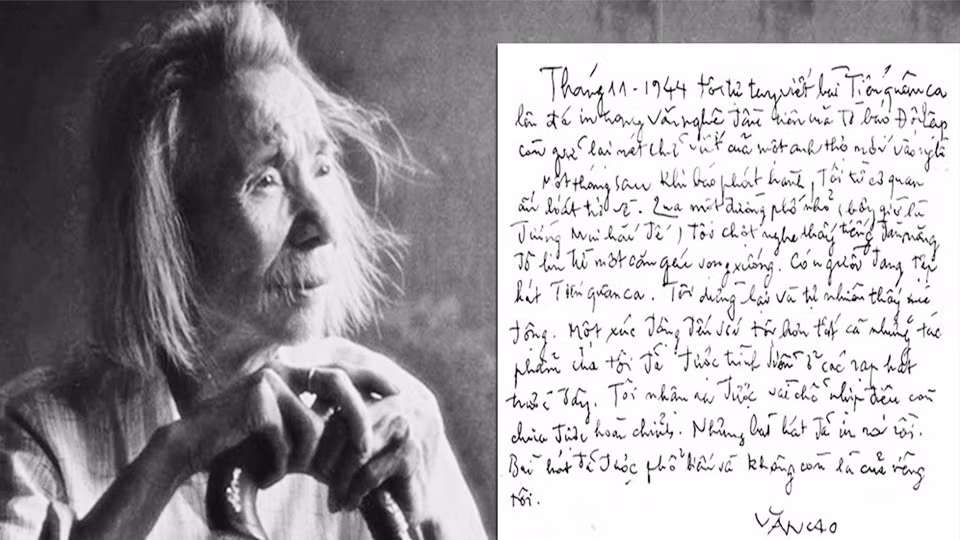 Tháng 11 - 1944 tôi tự tay viết bài Tiến quân ca
lên đá in trong văn nghệ đầu tiên của tờ báo Độc lập
còn giữ lại nét chữ viết của một anh thợ mới vào nghề
Một tháng sau khi báo phát hành, Tôi từ cơ quan
ấn loát trở về. Qua một đường phố nhỏ, (bây giờ là
đường Mai hắc đế) tôi chợt nghe thấy tiếng đàn măng
đô lin từ một căn gác vọng xuống. Có người đang tập
hát Tiến quân ca. Tôi dừng lại và tự nhiên thấy xúc
động. Một xúc động đến với tôi hơn tất cả những tác
phẩm của tôi đã được trình diễn ở các rạp hát
trước đây. Tôi nhận ra được vài chỗ nhịp điệu còn
chưa được hoàn chỉnh. Nhưng bài hát đã in ra rồi.
Bài hát đã được phổ biến và không còn là của riêng
tôi.
VĂN CAO